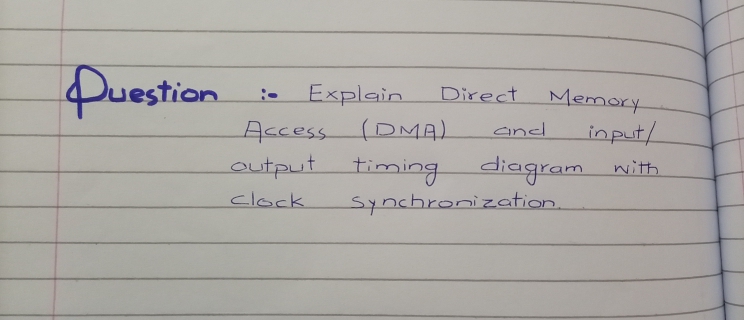 Question :- Explain Direct Memory
Access (DMA) and input/
output timing diagram with
clock synchronization.